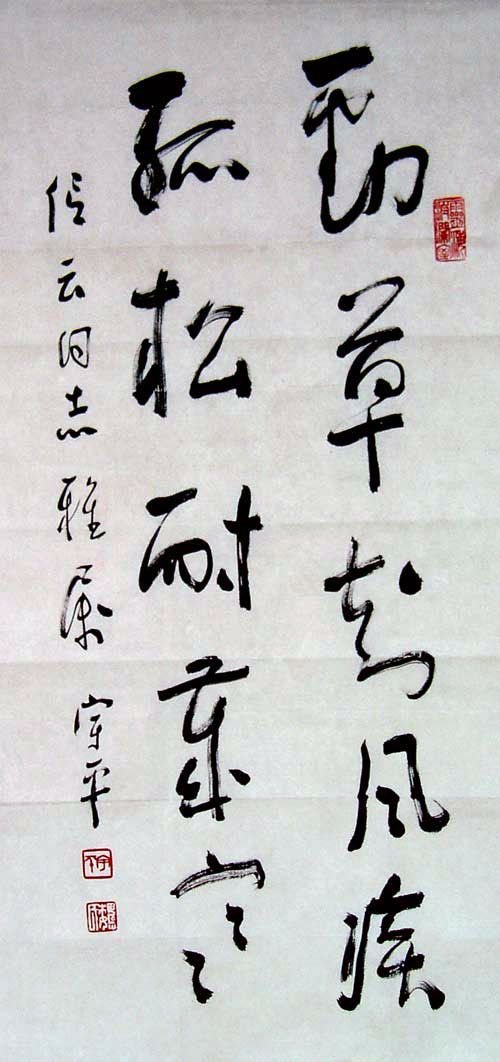 劲草知风疾
孤松耐岁寒
云同志雅属 平